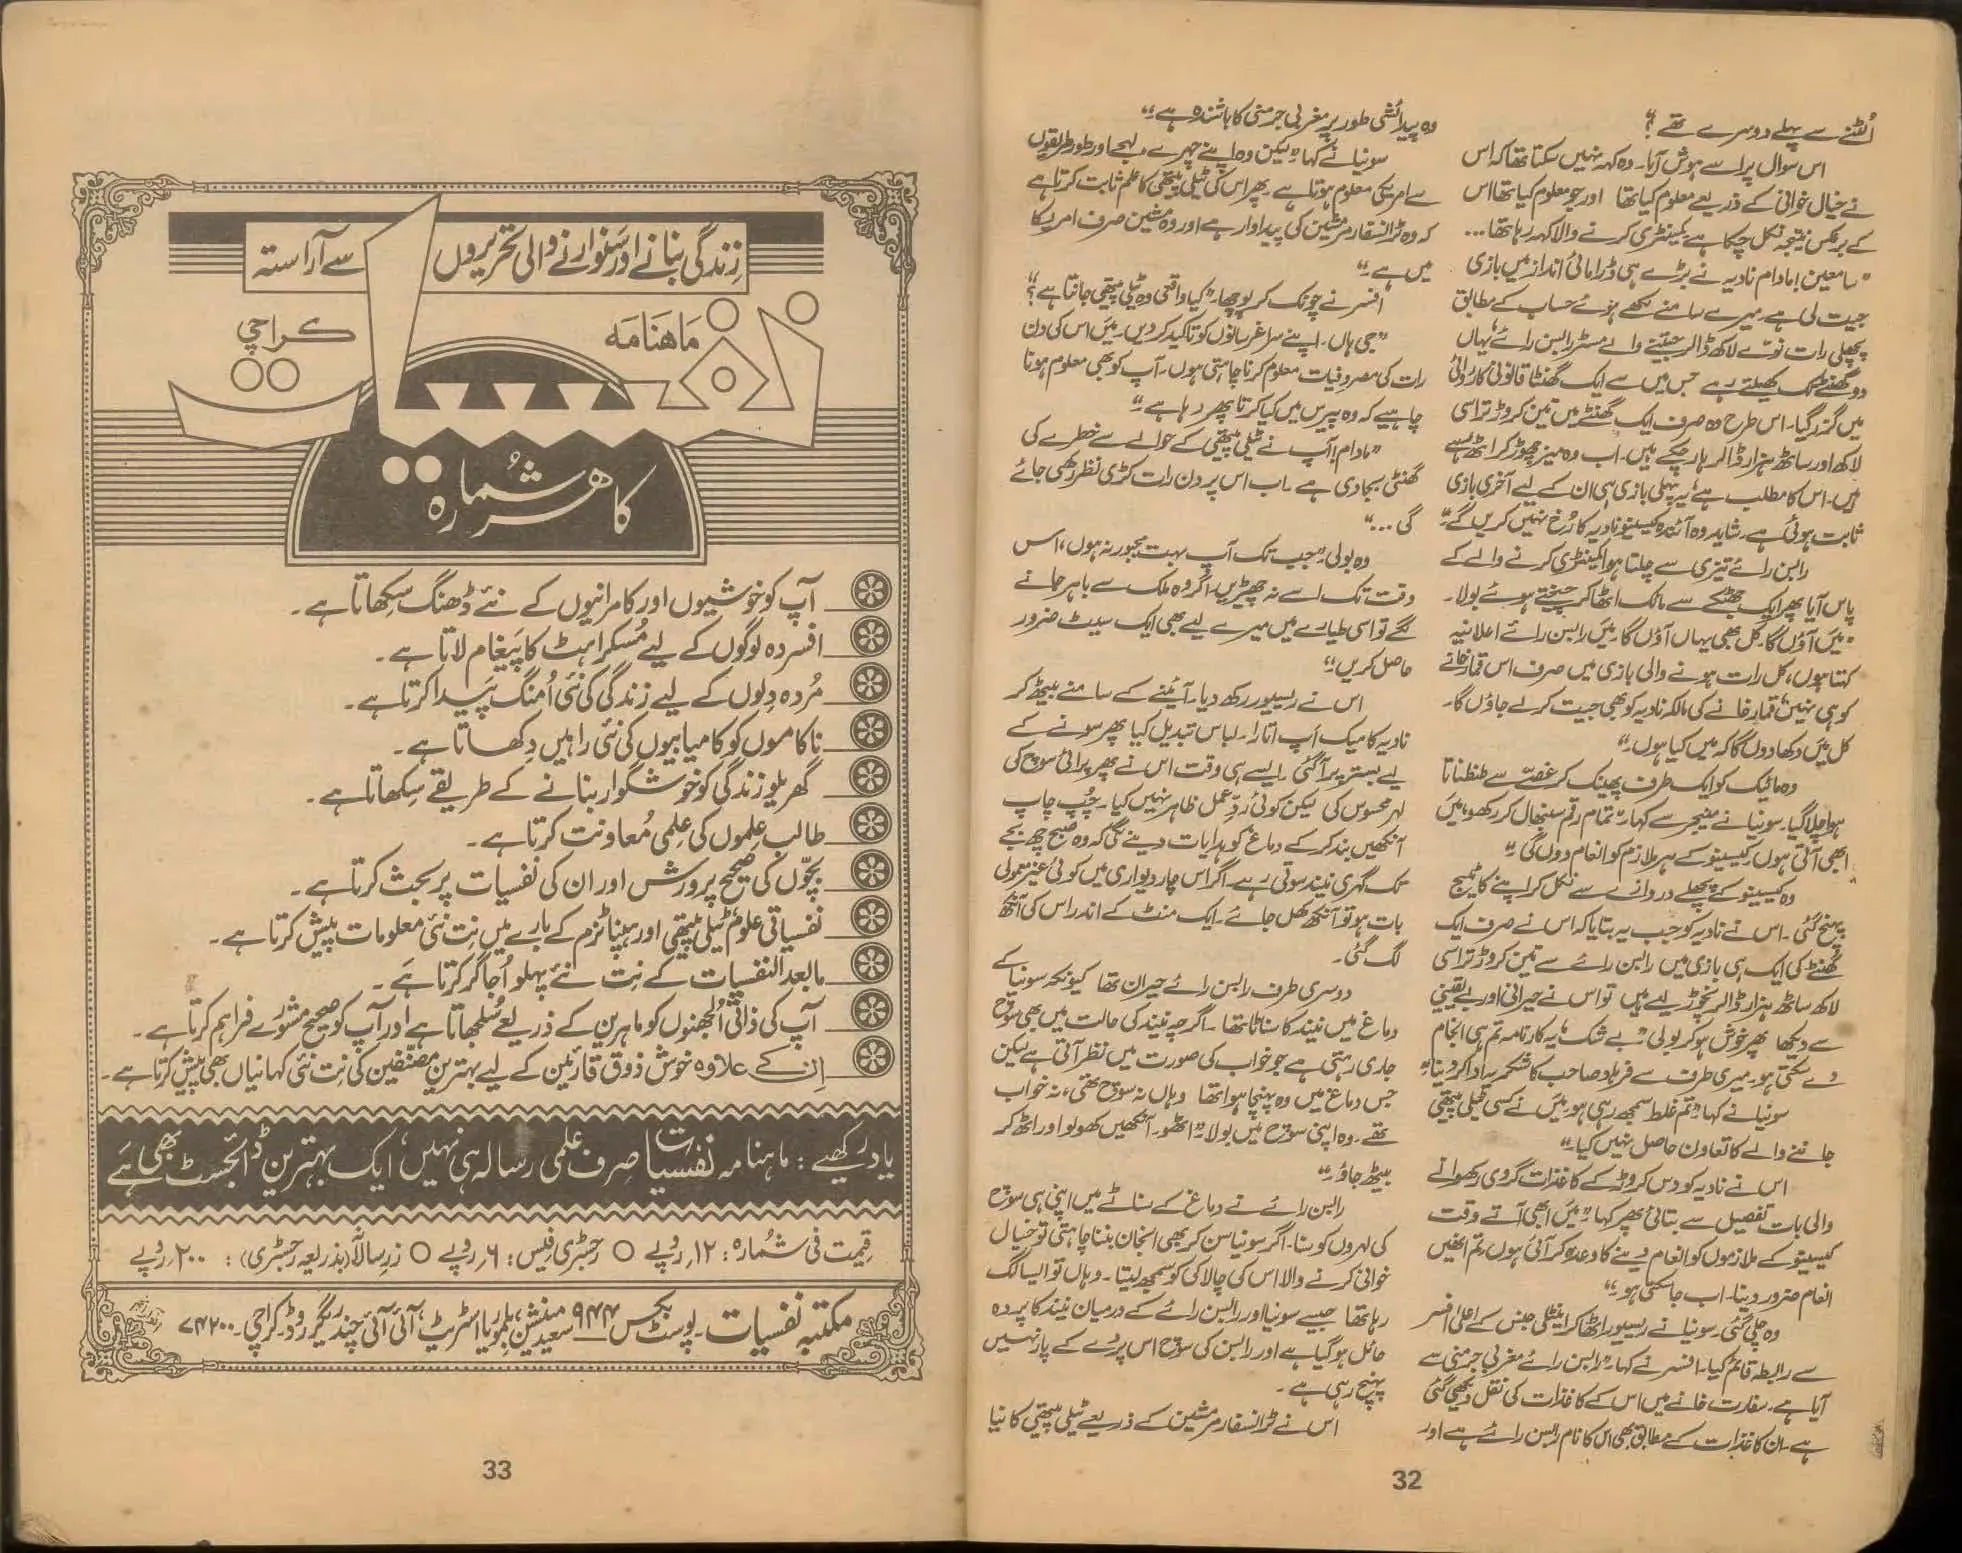 اُلٹنے سے پہلے دوسرے تھے؟“
اس سوال پر اسے ہوش آیا۔ وہ کہہ نہیں سکتا تھا کہ اس
نے خیال خوانی کے ذریعے معلوم کیا تھا اور جو معلوم کیا تھا اس
کے برعکس نتیجہ نکل چکا ہے۔ کمینٹری کرنے والا کہہ رہا تھا...
”سامعین! مادام نادیہ نے بڑے ہی ڈرامائی انداز میں بازی
جیت لی ہے۔ میرے سامنے لکھے ہوئے حساب کے مطابق
پچھلی رات نوّے لاکھ ڈالر جیتنے والے مسٹر رابن رائے یہاں
دو گھنٹے تک کھیلتے رہے جس میں سے ایک گھنٹا قانونی کارروائی
میں گزر گیا۔ اس طرح وہ صرف ایک گھنٹے میں تین کروڑ تراسی
لاکھ اور ساٹھ ہزار ڈالر ہار چکے ہیں۔ اب وہ میز چھوڑ کر اٹھ رہے
ہیں۔ اس کا مطلب ہے، یہ پہلی بازی ہی ان کے لیے آخری بازی
ثابت ہوئی ہے۔ شاید وہ آئندہ کیسینو نادیہ کا رُخ نہیں کریں گے۔“
رابن رائے تیزی سے چلتا ہوا کمینٹری کرنے والے کے
پاس آیا پھر ایک جھٹکے سے مائک اٹھا کر چیختے ہوئے بولا۔
”میں آؤں گا۔ کل بھی یہاں آؤں گا۔ میں رابن رائے اعلانیہ
کہتا ہوں، کل رات ہونے والی بازی میں صرف اس قمار خانے
کو ہی نہیں، قمار خانے کی مالکہ نادیہ کو بھی جیت کر لے جاؤں گا۔
کل میں دکھا دوں گا کہ میں کیا ہوں۔“
وہ مائیک کو ایک طرف پھینک کر غصّے سے طنطناتا
ہوا چلا گیا۔ سونیا نے منیجر سے کہا۔ ”تمام رقم سنبھال کر رکھو، میں
ابھی آتی ہوں۔ کیسینو کے ہر ملازم کو انعام دوں گی۔“
وہ کیسینو کے پچھلے دروازے سے نکل کر اپنے کاٹیج
پہنچ گئی۔ اس نے نادیہ کو جب یہ بتایا کہ اس نے صرف ایک
گھنٹے کی ایک ہی بازی میں رابن رائے سے تین کروڑ تراسی
لاکھ ساٹھ ہزار ڈالر نچوڑ لیے ہیں تو اس نے حیرانی اور بے یقینی
سے دیکھا پھر خوش ہو کر بولی ”بے شک، یہ کارنامہ تم ہی انجام
دے سکتی ہو۔ میری طرف سے فرہاد صاحب کا شکریہ ادا کر دینا۔“
سونیا نے کہا ”تم غلط سمجھ رہی ہو۔ میں نے کسی ٹیلی پیتھی
جاننے والے کا تعاون حاصل نہیں کیا۔“
اس نے نادیہ کو دس کروڑ کے کاغذات گروی رکھوانے
والی بات تفصیل سے بتائی پھر کہا ”میں ابھی آتے وقت
کیسینو کے ملازموں کو انعام دینے کا وعدہ کر آئی ہوں، تم انھیں
انعام ضرور دینا۔ اب جا سکتی ہو۔“
وہ چلی گئی۔ سونیا نے ریسیور اٹھا کر اینٹلی جنس کے اعلیٰ افسر
سے رابطہ قائم کیا۔ افسر نے کہا۔ ”رابن رائے مغربی جرمنی سے
آیا ہے۔ سفارت خانے میں اس کے کاغذات کی نقل دیکھی گئی
ہے۔ ان کاغذات کے مطابق بھی اس کا نام رابن رائے ہے اور
وہ پیدائشی طور پر مغربی جرمنی کا باشندہ ہے۔“
سونیا نے کہا ”لیکن وہ اپنے چہرے، لہجے اور طور طریقوں
سے امریکی معلوم ہوتا ہے۔ پھر اس کی ٹیلی پیتھی کا علم ثابت کرتا ہے
کہ وہ ٹرانسفارمر مشین کی پیداوار ہے اور وہ مشین صرف امریکا
میں ہے۔“
افسر نے چونک کر پوچھا۔ ”کیا واقعی وہ ٹیلی پیتھی جانتا ہے؟“
”جی ہاں۔ اپنے سراغرسانوں کو تاکید کر دیں۔ میں اس کی دن
رات کی مصروفیات معلوم کرنا چاہتی ہوں۔ آپ کو بھی معلوم ہونا
چاہیے کہ وہ پیرس میں کیا کرتا پھر رہا ہے۔“
”مادام! آپ نے ٹیلی پیتھی کے حوالے سے خطرے کی
گھنٹی بجا دی ہے۔ اب اس پر دن رات کڑی نظر رکھی جائے
گی...“
وہ بولی ”جب تک آپ بہت مجبور نہ ہوں، اس
وقت تک اسے نہ چھیڑیں، اگر وہ ملک سے باہر جانے
لگے تو اسی طیارے میں میرے لیے بھی ایک سیٹ ضرور
حاصل کریں۔“
اس نے ریسیور رکھ دیا۔ آئینے کے سامنے بیٹھ کر
نادیہ کا میک اپ اتارا۔ لباس تبدیل کیا پھر سونے کے
لیے بستر پر آ گئی۔ ایسے ہی وقت اس نے پھر پرائی سوچ کی
لہر محسوس کی لیکن کوئی ردِّ عمل ظاہر نہیں کیا۔ چُپ چاپ
آنکھیں بند کر کے دماغ کو ہدایات دینے لگی کہ وہ صبح چھ بجے
تک گہری نیند سوتی رہے۔ اگر اس چار دیواری میں کوئی غیر معمولی
بات ہو تو آنکھ کھل جائے۔ ایک منٹ کے اندر اس کی آنکھ
لگ گئی۔
دوسری طرف رابن رائے حیران تھا کیونکہ سونیا کے
دماغ میں نیند کا سناٹا تھا۔ اگرچہ نیند کی حالت میں بھی سوچ
جاری رہتی ہے جو خواب کی صورت میں نظر آتی ہے لیکن
جس دماغ میں وہ پہنچا ہوا تھا وہاں نہ سوچ تھی، نہ خواب
تھے۔ وہ اپنی سوچ میں بولا ”اٹھو۔ آنکھیں کھولو اور اٹھ کر
بیٹھ جاؤ۔“
رابن رائے نے دماغ کے سناٹے میں اپنی ہی سوچ
کی لہروں کو سنا۔ اگر سونیا سن کر بھی انجان بننا چاہتی تو خیال
خوانی کرنے والا اس کی چالاکی کو سمجھ لیتا۔ وہاں تو ایسا لگ
رہا تھا جیسے سونیا اور رابن رائے کے درمیان نیند کا پردہ
حائل ہو گیا ہے اور رابن کی سوچ اس پردے کے پار نہیں
پہنچ رہی ہے۔
اس نے ٹرانسفارمر مشین کے ذریعے ٹیلی پیتھی کا نیا
32
زندگی بنانے اور سنوارنے والی تحریروں سے آراستہ
ماهنامه
نفسیات
کراچی
کا هر شمارہ
آپ کو خوشیوں اور کامرانیوں کے نئے ڈھنگ سِکھاتا ہے۔
افسردہ لوگوں کے لیے مُسکراہٹ کا پَیغام لاتا ہے۔
مُردہ دِلوں کے لیے زندگی کی نئی اُمنگ پَیدا کرتا ہے۔
ناکاموں کو کامیابیوں کی نئی راہیں دِکھاتا ہے۔
گھریلو زندگی کو خوشگوار بنانے کے طریقے سِکھاتا ہے۔
طالب علموں کی علمی مُعاونت کرتا ہے۔
بچّوں کی صحیح پرورش اور ان کی نفسیات پر بحث کرتا ہے۔
نفسیاتی علوم، ٹیلی پیتھی اور ہپناٹزم کے بارے میں نِت نئی معلومات پیش کرتا ہے۔
مابعد النفسیات کے نت نئے پہلو اُجاگر کرتا ہے۔
آپ کی ذاتی اُلجھنوں کو ماہرین کے ذریعے سُلجھاتا ہے اور آپ کو صحیح مشورے فراہم کرتا ہے۔
اِن کے علاوہ خوش ذوق قارئین کے لیے بہترین مصنّفین کی نِت نئی کہانیاں بھی پیش کرتا ہے۔
یاد رکھیے : ماہنامہ نفسیات صرف علمی رسالہ ہی نہیں، ایک بہترین ڈائجسٹ بھی ہے
قیمت فی شمارہ: ۱۲ روپے ○ رجسٹری فیس: ۶ روپے ○ زرِ سالانہ (بذریعہ رجسٹری): ۲۰۰ روپے
مکتبہ نفسیات۔ پوسٹ بکس ۹۴۴ سعید مینشن، بلوریا اسٹریٹ، آئی آئی چندریگر روڈ۔ کراچی۔ ۷۴۲۰۰
33